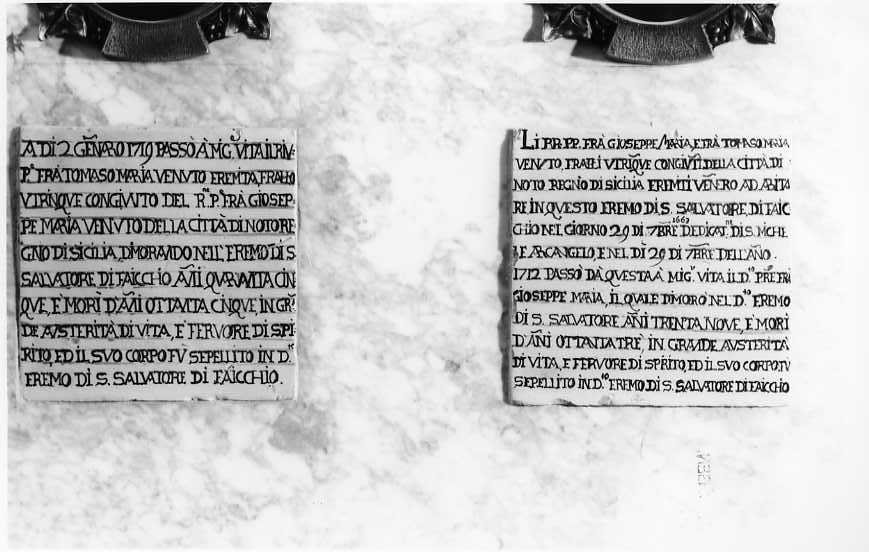 A DI 2 GĒNARO 1719 PASSÒ À MIG.R VITA IL RIV:
P.E FRÀ TOMASO MARIA VENVTO EREMITA, FRAT.LLO
VTRINQVE CONGIVNTO DEL R.NDO P.E FRÀ GIOSEP-
PE MARIA VENVTO DELLA CITTÀ DI NOTO RE
GNO DI SICILIA, DIMORANDO NELL' EREMO DI S
SALVATORE DI FAICCHIO ĀNI QVARANTA CIN
QVE, E MORÌ D'ĀNI OTTANTA CINQVE IN GR̄
DE AVSTERITÀ DI VITA, E FERVORE DI SPI
RITO, ED IL SVO CORPO FV SEPELLITO IN D.TO
EREMO DI S. SALVATORE DI FAICCHIO.
LI RR. PP. FRÀ GIVSEPPE MARIA, E FRÀ TOMASO MARIA
VENVTO, FRATELLI VTRIQVE CONGIVTI DELLA CITTÀ DI
NOTO REGNO DI SICILIA EREMITI VĒNERO AD ABITA
RE IN QVESTO EREMO DI S. SALVATORE DI FAIC
CHIO NEL GIORNO 29 DI 7BRE 1667 DEDICAT.NE DI S. MICHE
LE ARCANGELO, E NEL DÌ 29 DI 7BRE DELL'ĀNO.
1712 PASSÒ DA QVESTA À MIG.R VITA IL D.TO PRĒ FRÀ
GIOSEPPE MARIA, IL QVALE DIMORÒ NEL D.TO EREMO
DI S. SALVATORE ĀNI TRENTA NOVE, E MORÌ
D'ĀNI OTTANTA TRÈ IN GRANDE AVSTERITÀ
DI VITA, E FERVORE DI SPIRITO, ED IL SVO CORPO FV
SEPELLITO IN D.TO EREMO DI S. SALVATORE DI FAICCHIO